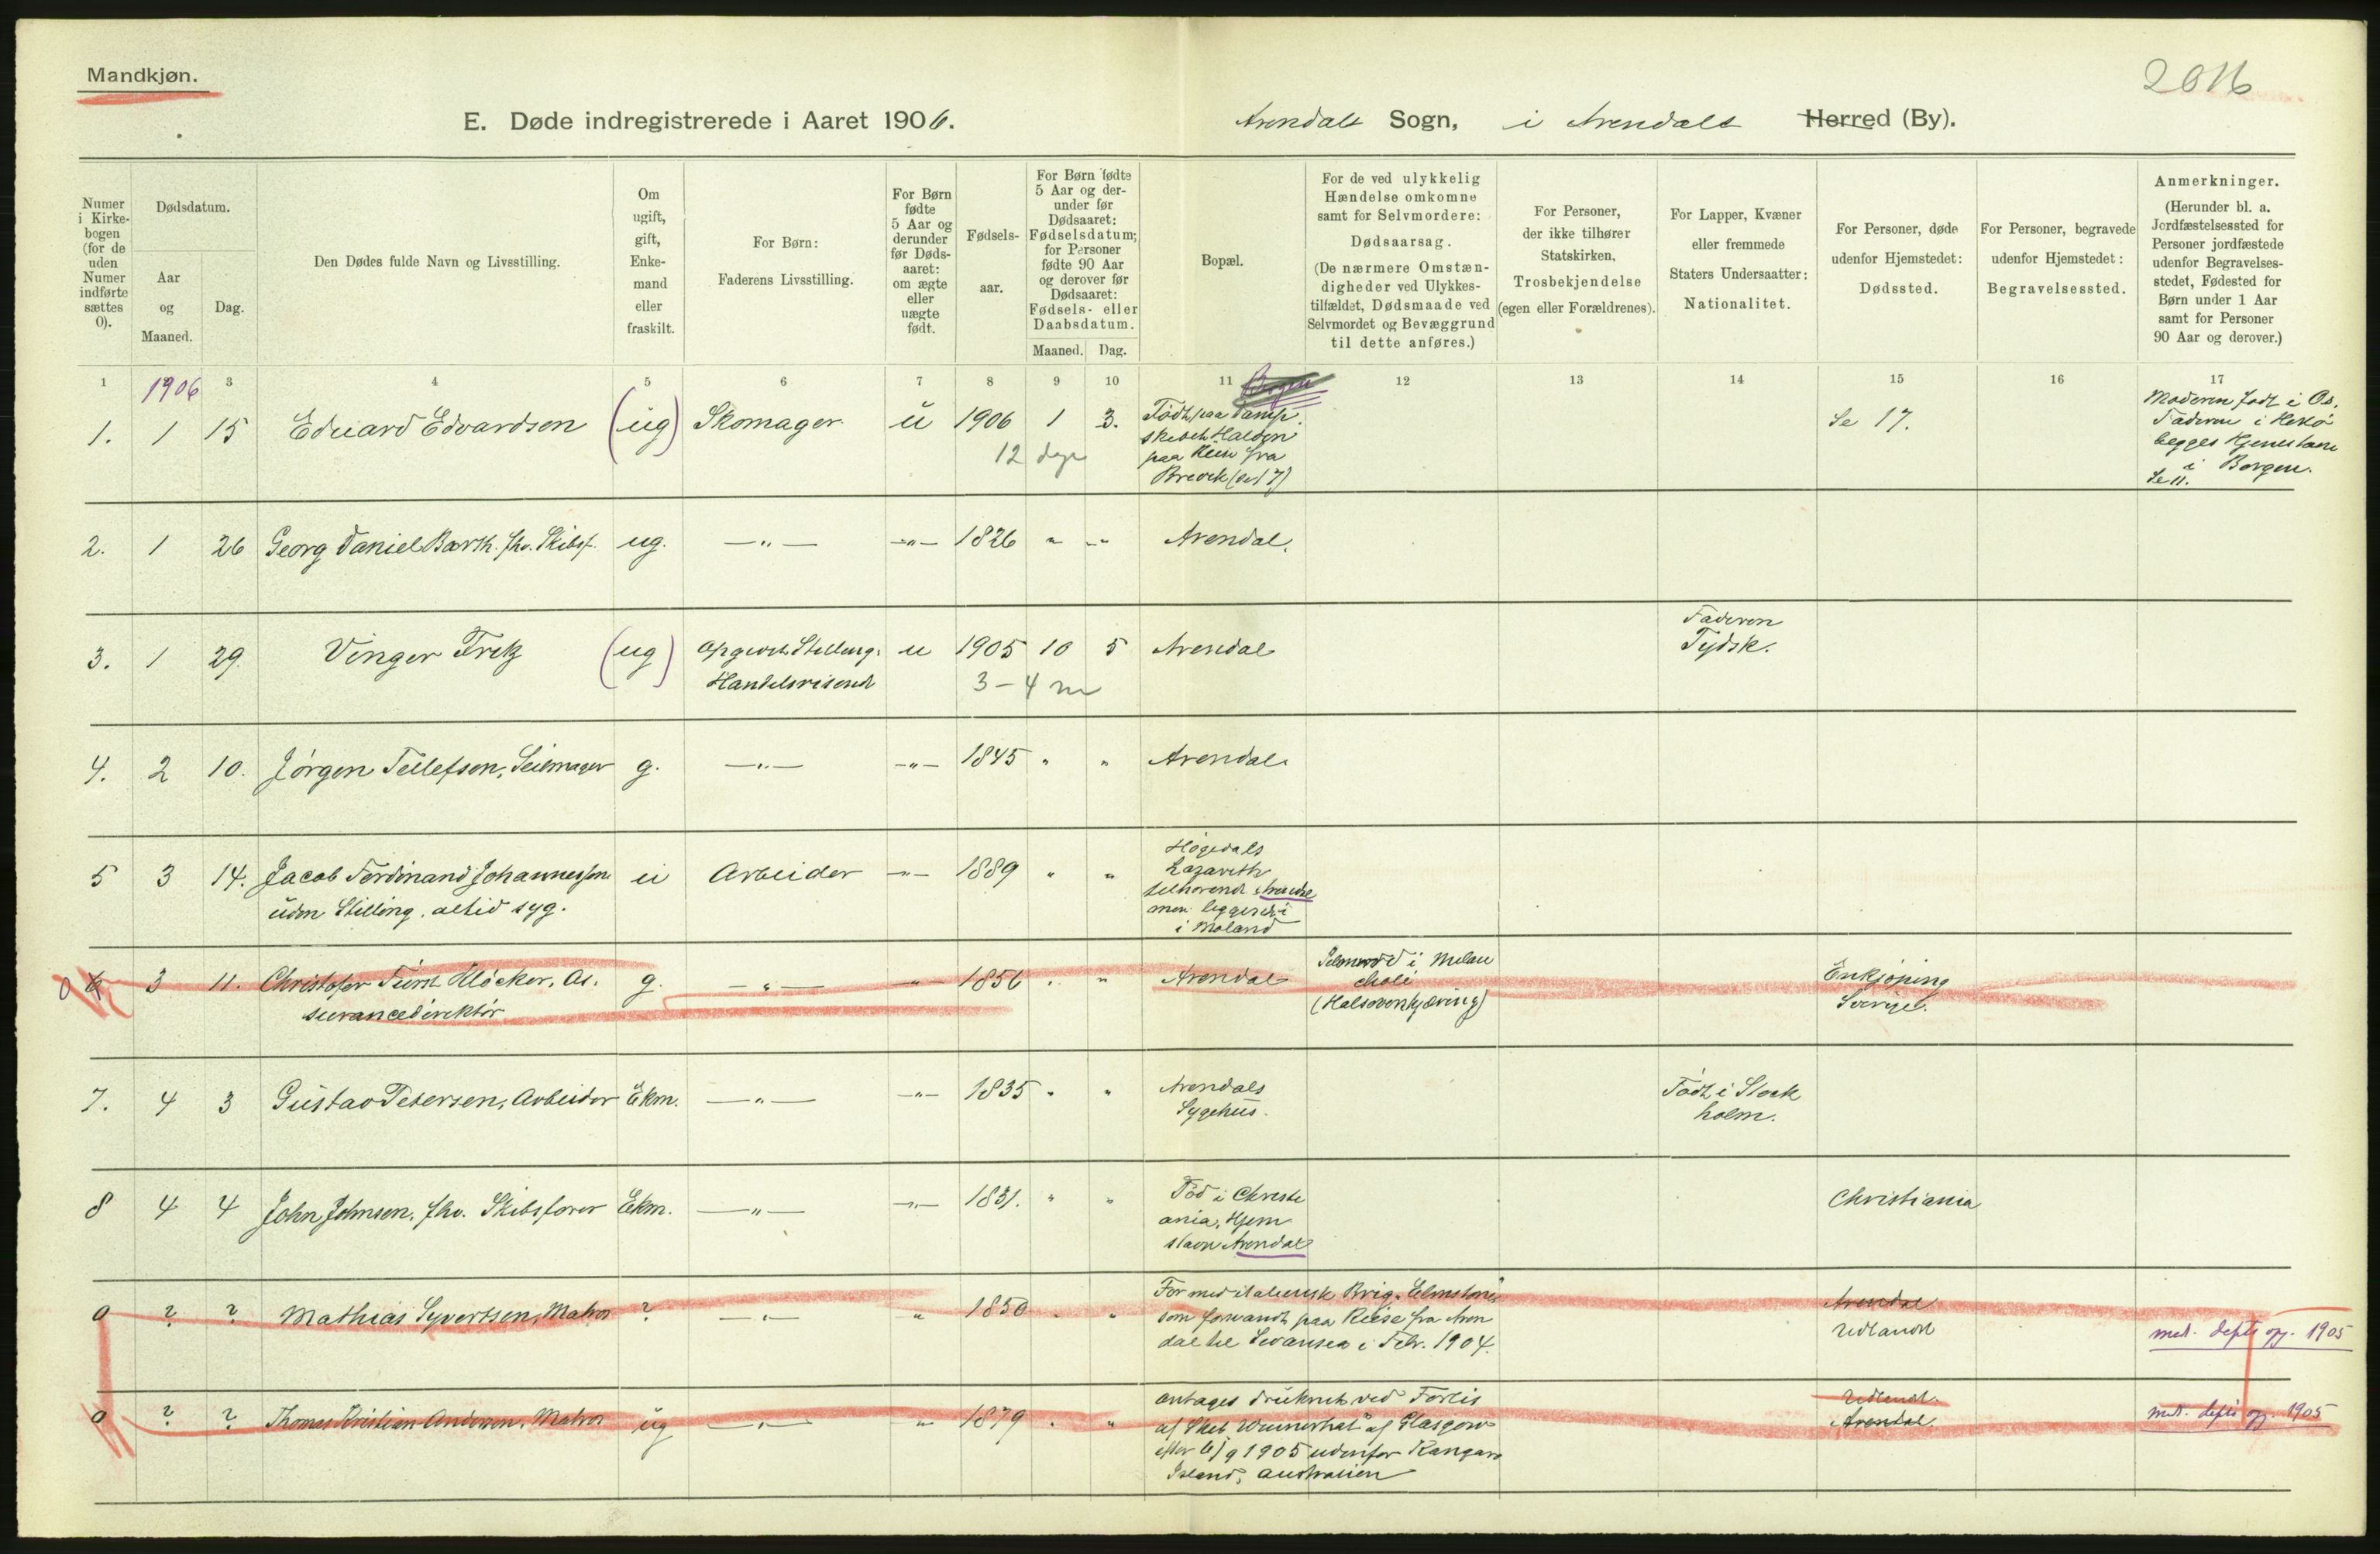 Mandkjøn.
2016
E. Døde indregistrerede i Aaret 1906.
Arendals Sogn, i Arendals Herred (By).
Numer i Kirke-bogen (for de uden Numer indførte sættes 0).
Dødsdatum.
Aar og Maaned.
Dag.
Den Dødes fulde Navn og Livsstilling.
Om ugift, gift, Enke-mand eller fraskilt.
For Børn: Faderens Livsstilling.
For Børn fødte 5 Aar og derunder før Døds-aaret: om ægte eller uægte født.
Fødsels-aar.
For Børn fødte 5 Aar og der-under før Dødsaaret: Fødselsdatum; for Personer fødte 90 Aar og derover før Dødsaaret: Fødsels- eller Daabsdatum.
Maaned. Dag.
Bopæl.
For de ved ulykkelig Hændelse omkomne samt for Selvmordere: Dødsaarsag. (De nærmere Omstæn-digheder ved Ulykkes-tilfældet, Dødsmaade ved Selvmordet og Bevæggrund til dette anføres.)
For Personer, der ikke tilhører Statskirken, Trosbekjendelse (egen eller Forældrenes).
For Lapper, Kvæner eller fremmede Staters Undersaatter: Nationalitet.
For Personer, døde udenfor Hjemstedet: Dødssted.
For Personer, begravede udenfor Hjemstedet: Begravelsessted.
Anmerkninger. (Herunder bl. a. Jordfæstelsessted for Personer jordfæstede udenfor Begravelses-stedet, Fødested for Børn under 1 Aar samt for Personer 90 Aar og derover.)
1 3 4 5 6 7 8 9 10 11 12 13 14 15 16 17
1906
1. 1 15 Eduard Edvardsen (ug) Skomager u 1906 1 3.
12 dage
Født paa Damp
skibet Halden
paa Reise fra
Brevik (se 17)
Se 17.
Moderen født i Os.
Faderen i
begges Hjemstavn
i Bergen.
Se 11.
2. 1 26 Georg Daniel Barth. fhv. Skibsf. ug. —"— —"— 1826 " " Arendal.
3. 1 29. Vinger Fretz (ug) Opgivet Stilling: Handelsreisende u 1905 10 5 Arendal
3-4 m
Faderen
Tydsk.
4. 2 10. Jörgen Tellefsen, Seilmager g. —"— —"— 1845 " " Arendal.
5 3 14. Jacob Ferdinand Johannessen ui Arbeider —"— 1889 " "
uden Stilling. altid syg.
Høgedals
Lazareth
tilhørende Arendal
men liggende i
i Moland
0 6 3 11. Christofer Fürst Klöcker, As.
surancedirektör
g. —"— —"— 1856 " " Arendal
Selvmord i Melan
choli
(Halsoverskjæring)
Enkjøping
Sverige.
7. 4 3 Gustav Petersen, Arbeider Ekm. —"— —"— 1835 " "
Arendals
Sygehus.
Født i Stock
holm.
8 4 4 John Johnsen. fhv. Skibsfører Ekm. —"— —"— 1831. " "
Død i Christi
ania, Hjem
stavn Arendal
Christiania
0 ? ? Mathias Syvertsen, Matros ? —"— " 1850 " "
For med italiensk Brig. Elmstone
som forsvandt paa Reise fra Aren
dal til Swansea i Febr. 1904.
Arendal
Udlandet
med. depts og. 1905
0 ? ? Thomas Kristian Andersen, Matros ug —"— " 1879 " "
antages druknet ved Forlis
af Skib af Glasgow
efter 6/9 1905 udenfor Kangaro
Island, Australien
Udlandet.
i Arendal.
med. depts og. 1905